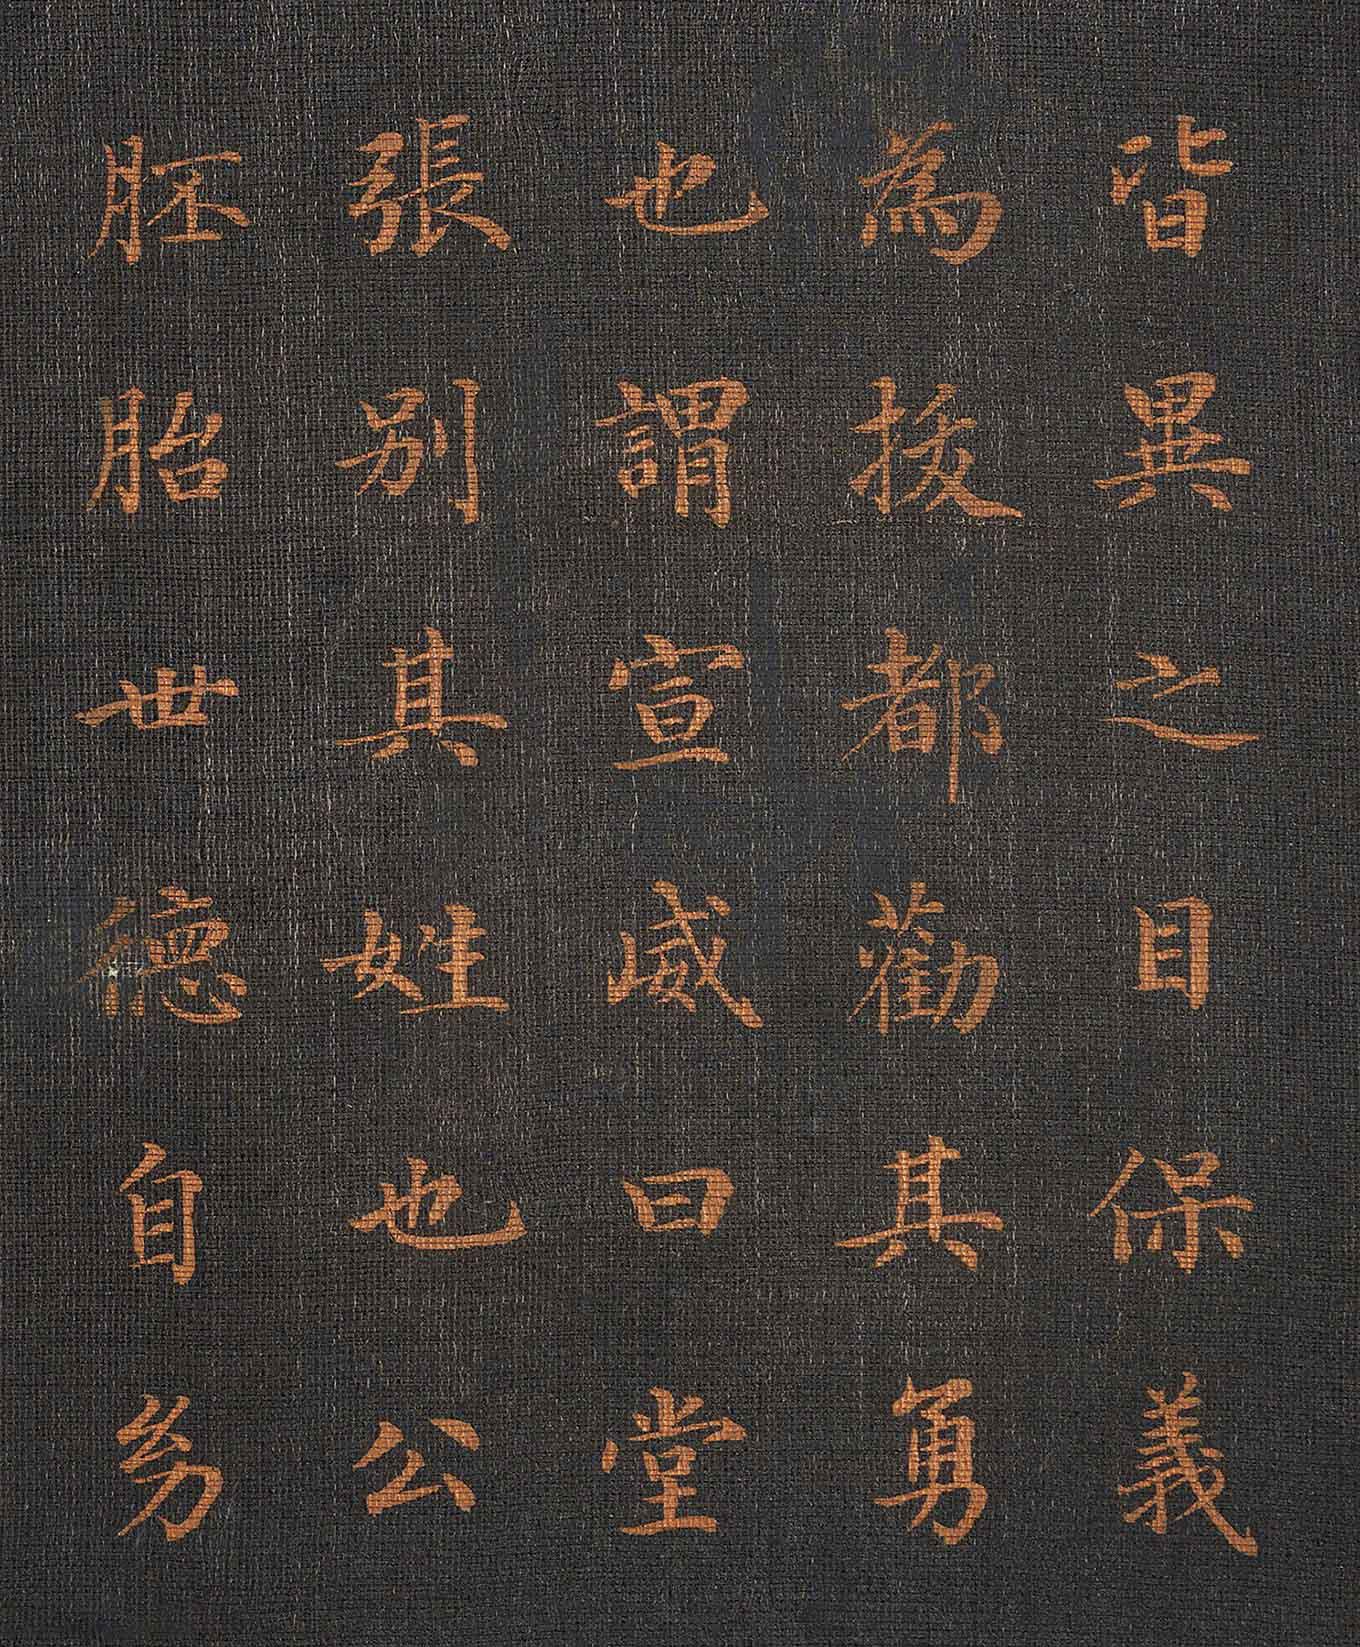 皆異之目保義
為拔都勸其勇
也謂宣威曰堂
張別其姓也公
胚胎世德自幼